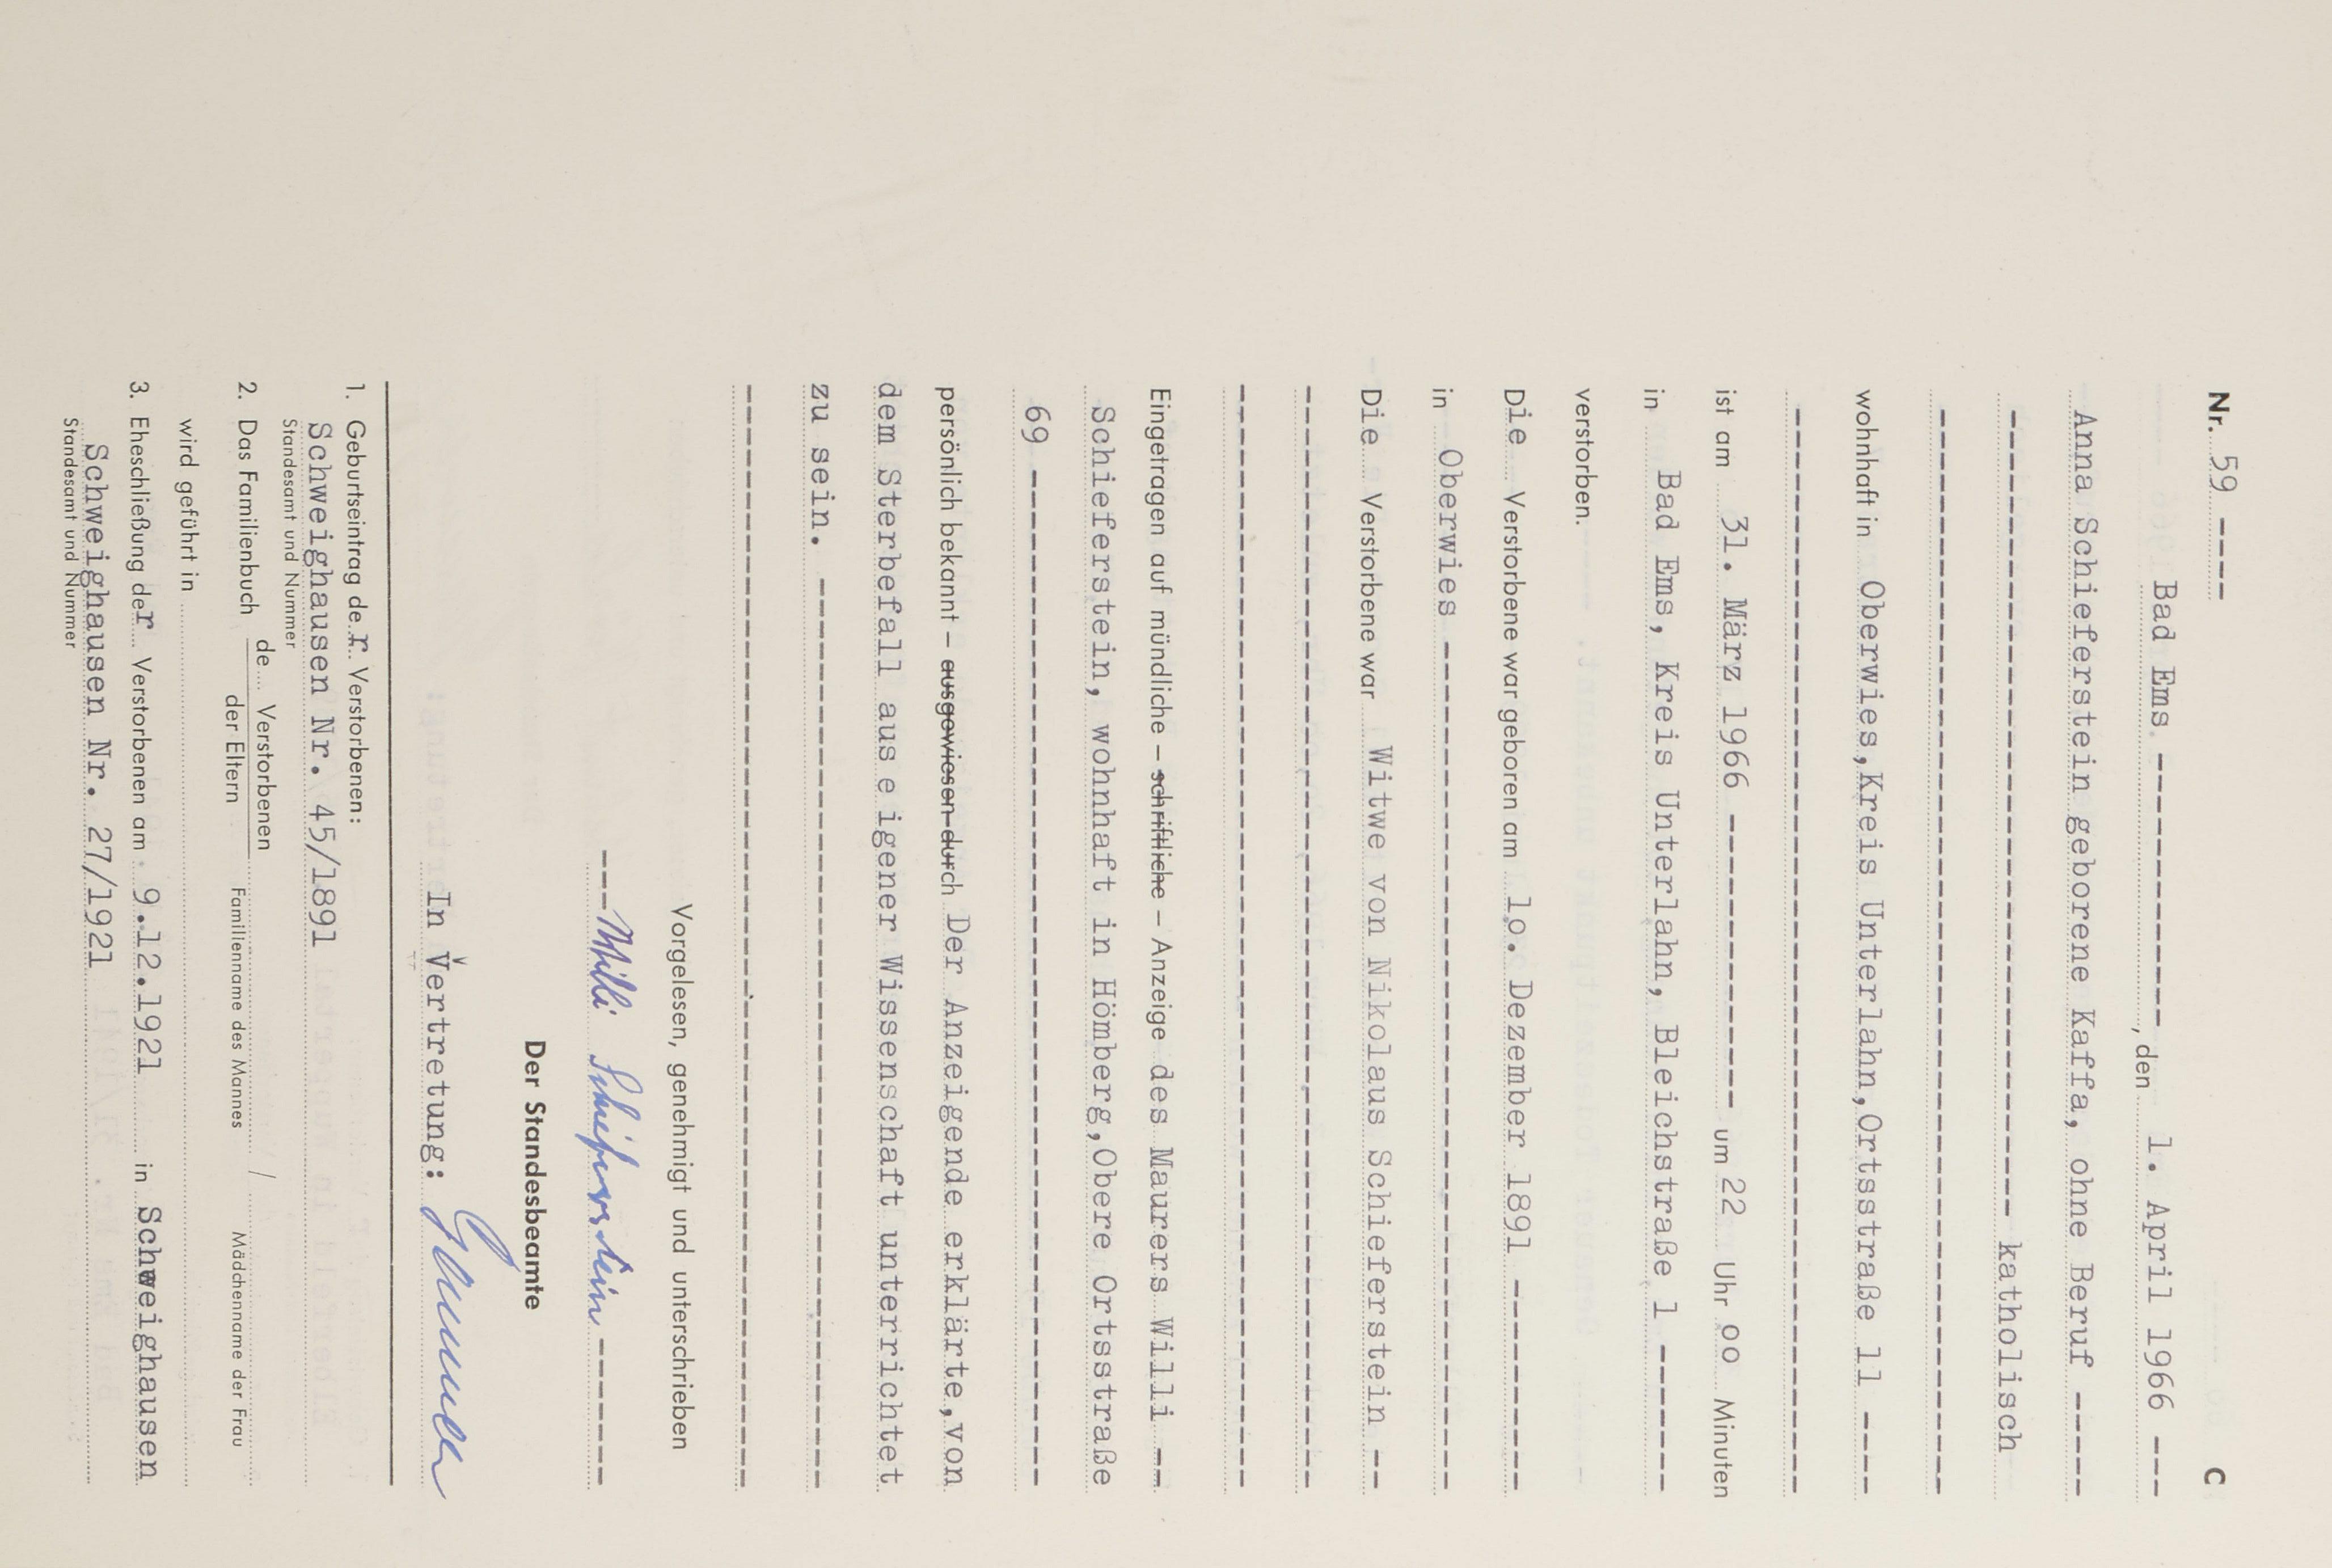 Nr. 59 ---- C
Bad Ems ---------------, den 1. April 1966 ---
Anna Schieferstein geborene Kaffa, ohne Beruf -----
--- katholisch
wohnhaft in Oberwies,Kreis Unterlahn,Ortsstraße 11 ----
ist am 31. März 1966 ---------------- um 22 Uhr oo Minuten
in Bad Ems, Kreis Unterlahn, Bleichstraße 1 -------
verstorben.
Die Verstorbene war geboren am 1o. Dezember 1891 ----------
in Oberwies ---
Die Verstorbene war Witwe von Nikolaus Schieferstein --
Eingetragen auf mündliche – schriftliche – Anzeige des Maurers Willi --
Schieferstein, wohnhaft in Hömberg,Obere Ortsstraße
69 ---
persönlich bekannt – ausgewiesen durch Der Anzeigende erklärte,von
dem Sterbefall aus e igener Wissenschaft unterrichtet
zu sein. ---
Vorgelesen, genehmigt und unterschrieben
--- Willi Schieferstein --------
Der Standesbeamte
In Vertretung:
1. Geburtseintrag der Verstorbenen:
Schweighausen Nr. 45/1891
Standesamt und Nummer
2. Das Familienbuch de... Verstorbenen
der Eltern
Familienname des Mannes / Mädchenname der Frau
wird geführt in
3. Eheschließung der Verstorbenen am 9.12.1921 in Schweighausen
Schweighausen Nr. 27/1921
Standesamt und Nummer